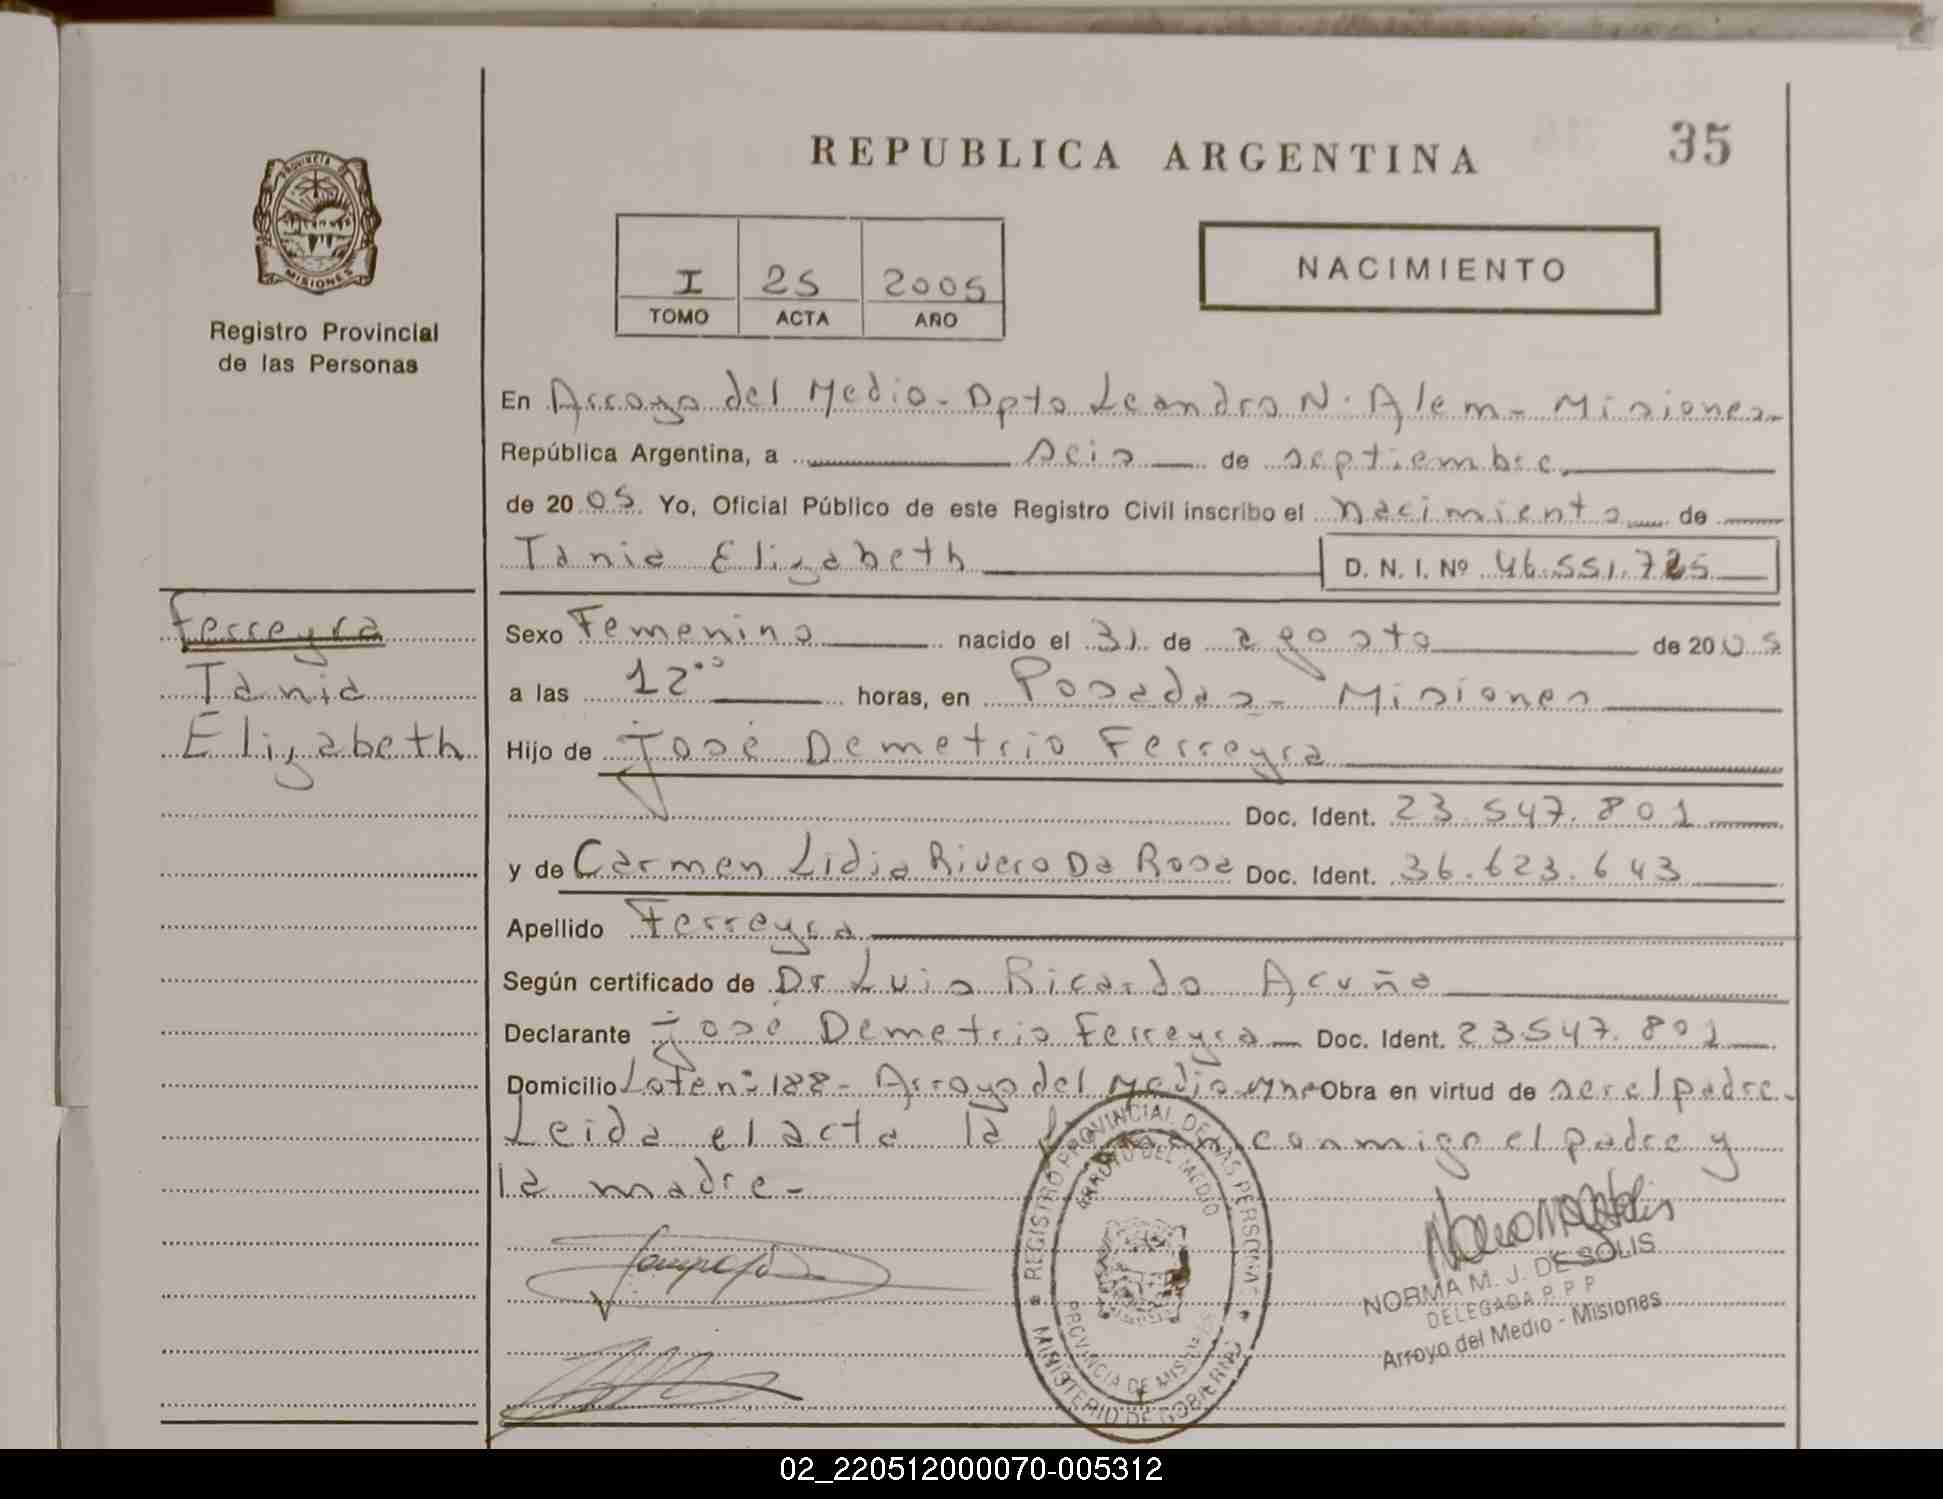 REPUBLICA ARGENTINA
35
PROVINCIA DE
MISIONES
Registro Provincial
de las Personas
I 25 2005
TOMO ACTA AÑO
NACIMIENTO
En Arroyo del Medio - Dpto Leandro N. Alem - Misiones
República Argentina, a seis de septiembre
de 2005 Yo, Oficial Público de este Registro Civil inscribo el nacimiento de
Tania Elizabeth D. N. I. Nº 46.551.725
Ferreyra
Tania
Elizabeth
Sexo Femenino nacido el 31 de agosto de 2005
a las 12°° horas, en Posadas - Misiones
Hijo de José Demetrio Ferreyra
Doc. Ident. 23.547.801
y de Carmen Lidia Rivero Da Rosa Doc. Ident. 36.623.643
Apellido Ferreyra
Según certificado de Dr Luis Ricardo Acuña
Declarante José Demetrio Ferreyra Doc. Ident. 23547.801
Domicilio Lote nº 188 - Arroyo del Medio Obra en virtud de ser el padre.
Leida el acta la firman conmigo el padre y
la madre -
REGISTRO PROVINCIAL DE LAS PERSONAS
ARROYO DEL MEDIO
PROVINCIA DE MISIONES
MINISTERIO DE GOBIERNO
NORMA M. J. DE SOLIS
DELEGADA R. P. P
Arroyo del Medio - Misiones
02_220512000070-005312